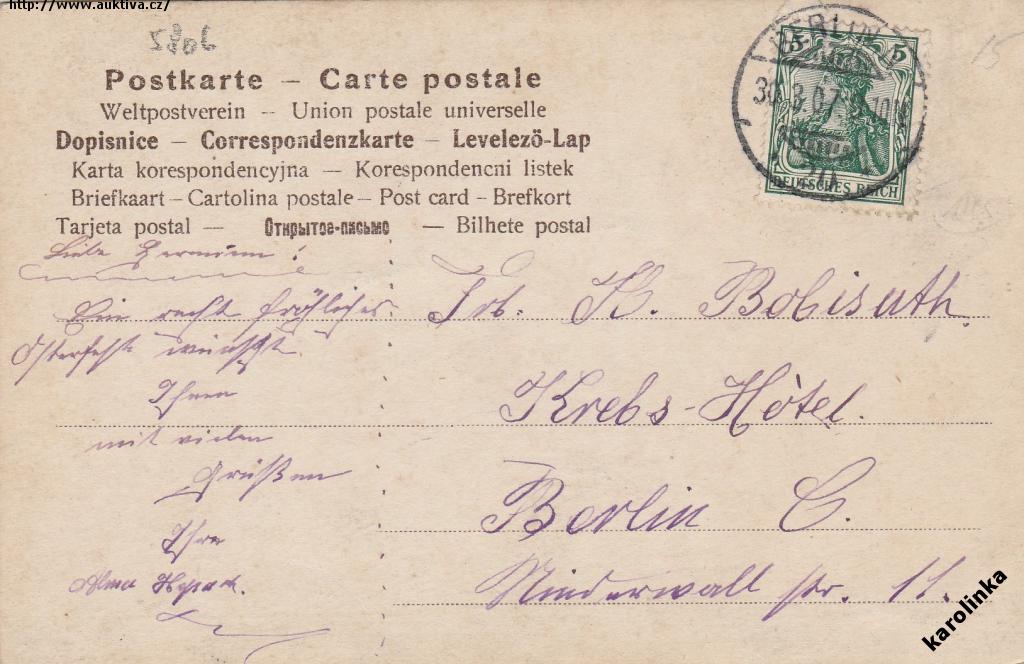 http://www.auktiva.cz/
Postkarte – Carte postale
Weltpostverein – Union postale universelle
Dopisnice – Correspondenzkarte – Levelező-Lap
Karta korespondencyjna – Korespondencni listek
Briefkaart – Cartolina postale – Post card – Brefkort
Tarjeta postal — Открытое-письмо — Bilhete postal
5 5
DEUTSCHES REICH
BERLIN
15
Liebe Hermine!
Ein recht fröhliches
Osterfest wünscht
Ihnen
mit vielen
Grüßen
Ihre
Alma
Frl. H. Bobisuth
Krebs-Hôtel.
Berlin C.
Niederwall str. 11.
karolinka